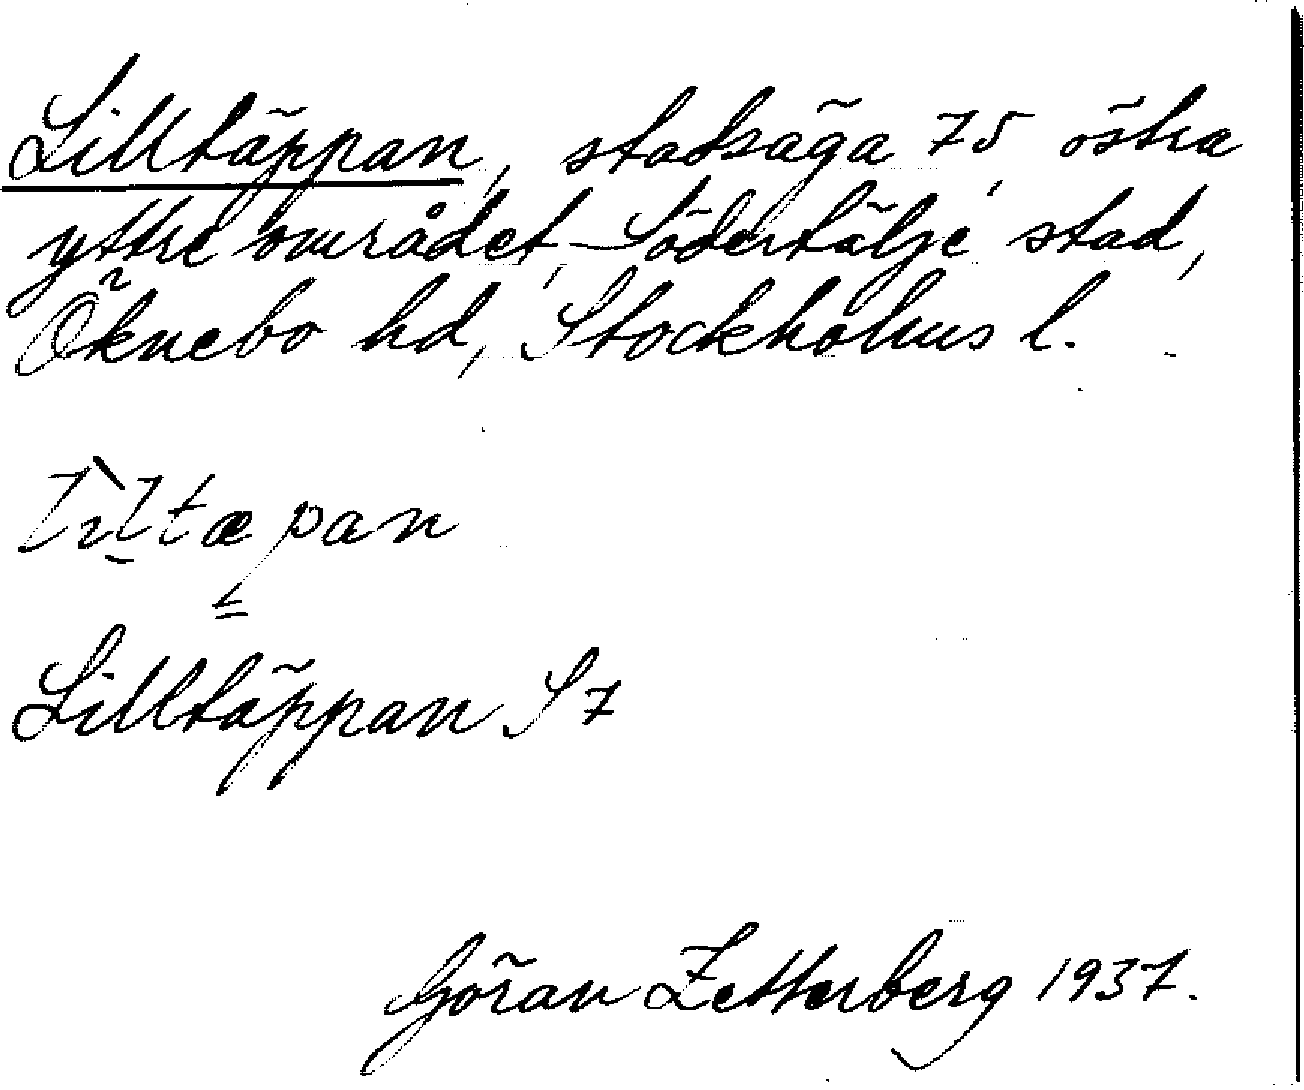 Lilltäppan, stadsäga 75, östra
yttre området, Södertälje stad,
Öknebo hd, Stockholms l.
Lilltäppan S7
Göran Zetterberg 1937.